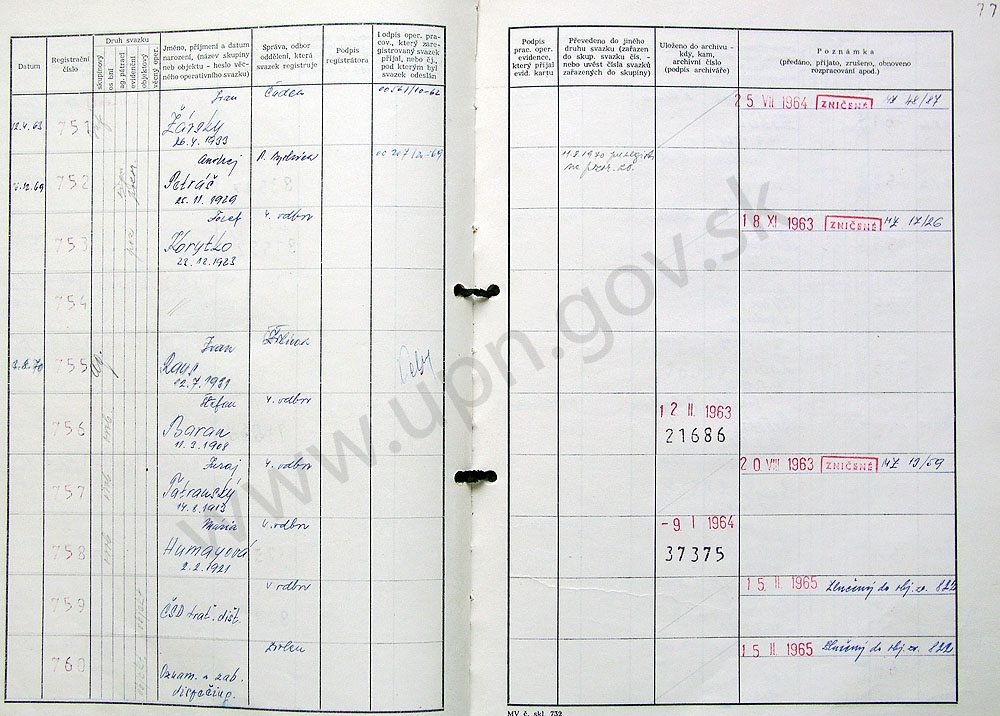 77
Datum
Registrační
číslo
Druh svazku
skupinový
os bní
ag. pátrací
evidenční
objektový
věcný oper.
Jméno, příjmení a datum
narození, (název skupiny
neb objektu - heslo věc-
ného operativního svazku)
Správa, odbor
oddělení, která
svazek registruje
Podpis
registrátora
Podpis oper. pra-
cov., který zare-
gistrovaný svazek
přijal, nebo čj.,
pod kterým byl
svazek odeslán
Podpis
prac. oper.
evidence,
který přijal
evid. kartu
Převedeno do jiného
druhu svazku (zařazen
do skup. svazku čís. -
nebo uvést čísla svazků
zařazených do skupiny)
Uloženo do archivu -
kdy, kam,
archivní číslo
(podpis archiváře)
Poznámka
(předáno, přijato, zrušeno, obnoveno
rozpracování apod.)
12.4.63
751
Ivan
Žársky
26.4.1933
Čadca
25 VII 1964 ZNIČENÉ 48/87
752
Andrej
Petráš
1929
753
Jozef
Korytko
22.12.1923
4. odbor
18 XI 1963 ZNIČENÉ 17/26
754
2.8.70
755
Ivan
12.7.1931
756
Štefan
Baran
11.3.1908
4. odbor
12 II. 1963
21686
757
Juraj
Patranský
14.8.1913
4. odbor
20 VIII 1963 ZNIČENÉ 19/59
758
Mária
Humayová
2.2.1921
V. odbor
-9. I 1964
37375
759
ČSD trať. dišt.
V odbor
15. II 1965 Zlučený do obj. zv. 822
760
Oznam. a zab.
Zvolen
15. II 1965 Zlučený do obj. zv. 822
MV č. skl. 732
www.upn.gov.sk